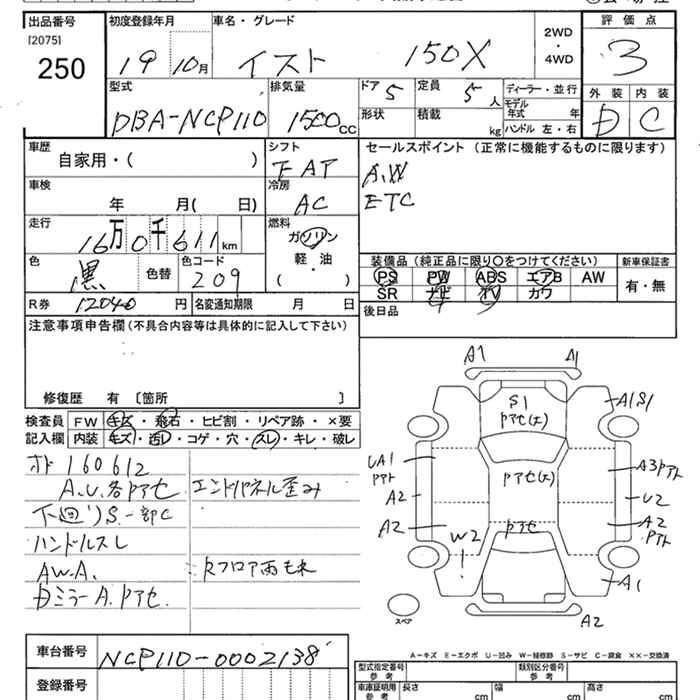 出品番号 初度登録年月 車名・グレード 2WD ・ 4WD 評価点
[2075]
250 19 10月 イスト 150X 3
型式 排気量 ドア 5 定員 5人 ディーラー・並行 外装 内装
DBA-NCP110 1500cc 形状 積載 kg モデル年式 年 D C
ハンドル 左・右
車歴 シフト セールスポイント (正常に機能するものに限ります)
自家用・( ) FAT A.W
車検 冷房
年 月( 日) AC ETC
走行 燃料
16万0千611km ガソリン
軽・油
( )
装備品 (純正品に限り○をつけてください) 新車保証書
色 黒 色替 色コード 209 PS PW ABS エアB AW 有・無
SR ナビ TV カワ
R券 12040円 名変通知期限 月 日 後日品
注意事項申告欄 (不具合内容等は具体的に記入して下さい)
修復歴 有 〔箇所 〕
検査員 FW キズ・飛石・ヒビ割・リペア跡・×要
記入欄 内装 キズ・汚レ・コゲ・穴・スレ・キレ・破レ
オド 160612
A.U.各Pアセ エンドパネル歪み
下回りS.一部C
ハンドルスレ
AWA.
DミラーA.Pアセ.
車台番号 NCP110-0002138
登録番号
A1 A1
S1
Pアセ(大)
A1S1
Pアセ(大)
UA1
Pアト
A3Pアト
A2 U2
A2
Pアト
A2 Pアセ
W2
A1
スペア
A2
A-キズ E-エクボ U-凹み W-補修跡 S-サビ C-腐食 XX-交換済
型式指定番号 参考 類別区分番号 参考
車庫証明用 参考 長さ cm 幅 cm 高さ cm